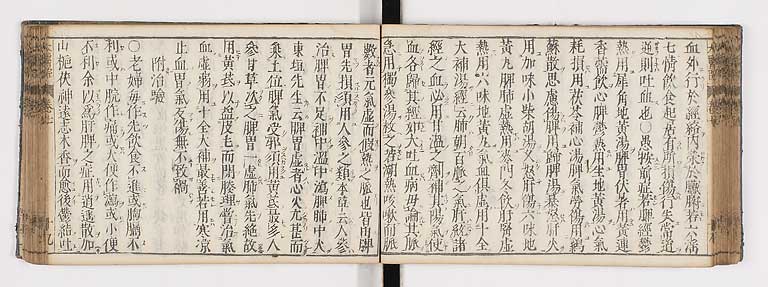 血外行於經絡內榮於臟腑若六淫
七情飲食起居有所損傷行失常道
逆則吐血也〇愚按前症若脾經鬱
熱用犀角地黃湯脾胃伏者用黃連
香薷飲心脾熱用生地黃湯心氣
耗損用茯苓補心湯脾氣勞傷用鷄
蘇散思慮傷脾用歸脾湯暴怒肝火
用加味小柴胡湯久怒肝傷六味地
黃丸脾肺虛熱麥門冬飲肝腎虛
熱用六味地黃丸氣血俱虛用十全
大補湯經云肺朝百脈之氣肝統諸
經之血必用甘溫之劑補其陽氣使
血各歸其經如大吐血病毋論其脈
急用獨參湯救之若潮熱咳嗽而脈
數者元氣虛而假熱之脈也皆由脾
胃先損須用人參之類本草云人參
治脾胃不足補中溫中瀉脾肺中火
東垣先生云脾胃虛者心火尢甚而
乘土位脾氣受邪須用黃芪最多人
參甘草次之脾胃一虛肺氣先絕故
用黃芪以益皮毛而閉腠理嘗治氣
血虛弱用十全大補最善若用寒涼
止血胃氣反傷無不致禍
附治驗
〇老婦每作先飲食不進或胸膈不
利或中脘作痛或大便作瀉或小便
不利余以爲肝脾之症用逍遙散加
山梔茯神遠志木香而愈後鬱結吐